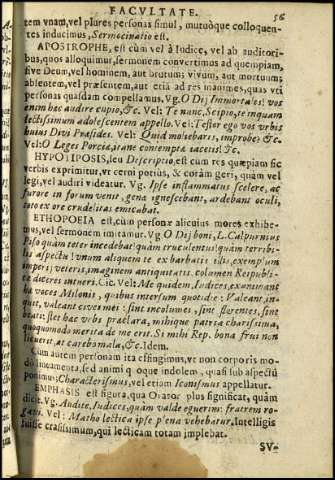 FACVLTATE. 56
tem vnam, vel plures personas simul, mutuòque colloquen-
tes inducimus, Sermocinatio est.
APOSTROPHE, est cùm vel à Iudice, vel ab auditori-
bus, quos alloquimur, sermonem convertimus ad quempiam,
sive Deum, vel hominem, aut brutum; vivum, aut mortuum;
absentem, vel præsentem, aut etiã ad res inanimes, quas vti
personas quasdam compellamus. Vg. O Dij Immortales! vos
enim hac audire cupio, &c. Vel: Te nunc, Scipio, te inquam
lectissimum adolescentem appello. Vel: Testor ego vos vrbis
huius Divi Præsides. Vel: Quid molsebaris, improbe? &c.
Vel: O Leges Porciæ, itane contempta iacetis! &c.
HYPOTIPOSIS, seu Descriptio, est cum res quæpiam sic
verbis exprimitur, vt cerni potiùs, & corám geri, quàm vel
legi, vel audiri videatur. Vg. Ipse inflammatus scelere, ac
furore in forum venit, gena ignescebant, ardebant oculi,
toto ex ore crudelitas emicabat.
ETHOPOEIA est, cùm personæ alicuius mores exhibe-
mus, vel sermonem imitamur. Vg. O Dij boni, L. Calpurnius
Piso quàm teter incedebat! quàm truculentus! quàm terribi-
lis aspectu! vnum aliquem te ex barbatis illis, exemp'um
imperij veteris, imaginem antiquitatis, columen Reipubli-
cæ diceres intueri. Cic. Vel: Me quidem, Iudices, exanimant
hæ voces Milonis, quibus intersum quotidie: Valeant, in-
quit, valeant cives mei: sint incolumes, sint florentes, sint
beati: stet hæc vrbs præclara, mihique patria charissima,
quoquomodo merita de me erit. Si mihi Rep. bona frui non
licuerit, at carebo mala, &c. Idem.
Cum autem personam ita effingimus, vt non corporis mo-
dò lineamenta, sed animi quoque indolem, quasi sub aspectũ
ponimus; Characterismus, vel etiam Iconismus appellatur.
EMPHASIS est figura, qua Orator plus significat, quàm
dicit. Vg. Audite, Iudices, quàm valde eguerim: fratrem ro-
gavi. Vel: Matho lectica ipse p'ena vehebatur. Intelligis
fuisse crassissimum, qui lecticam totam implebat.
SV-